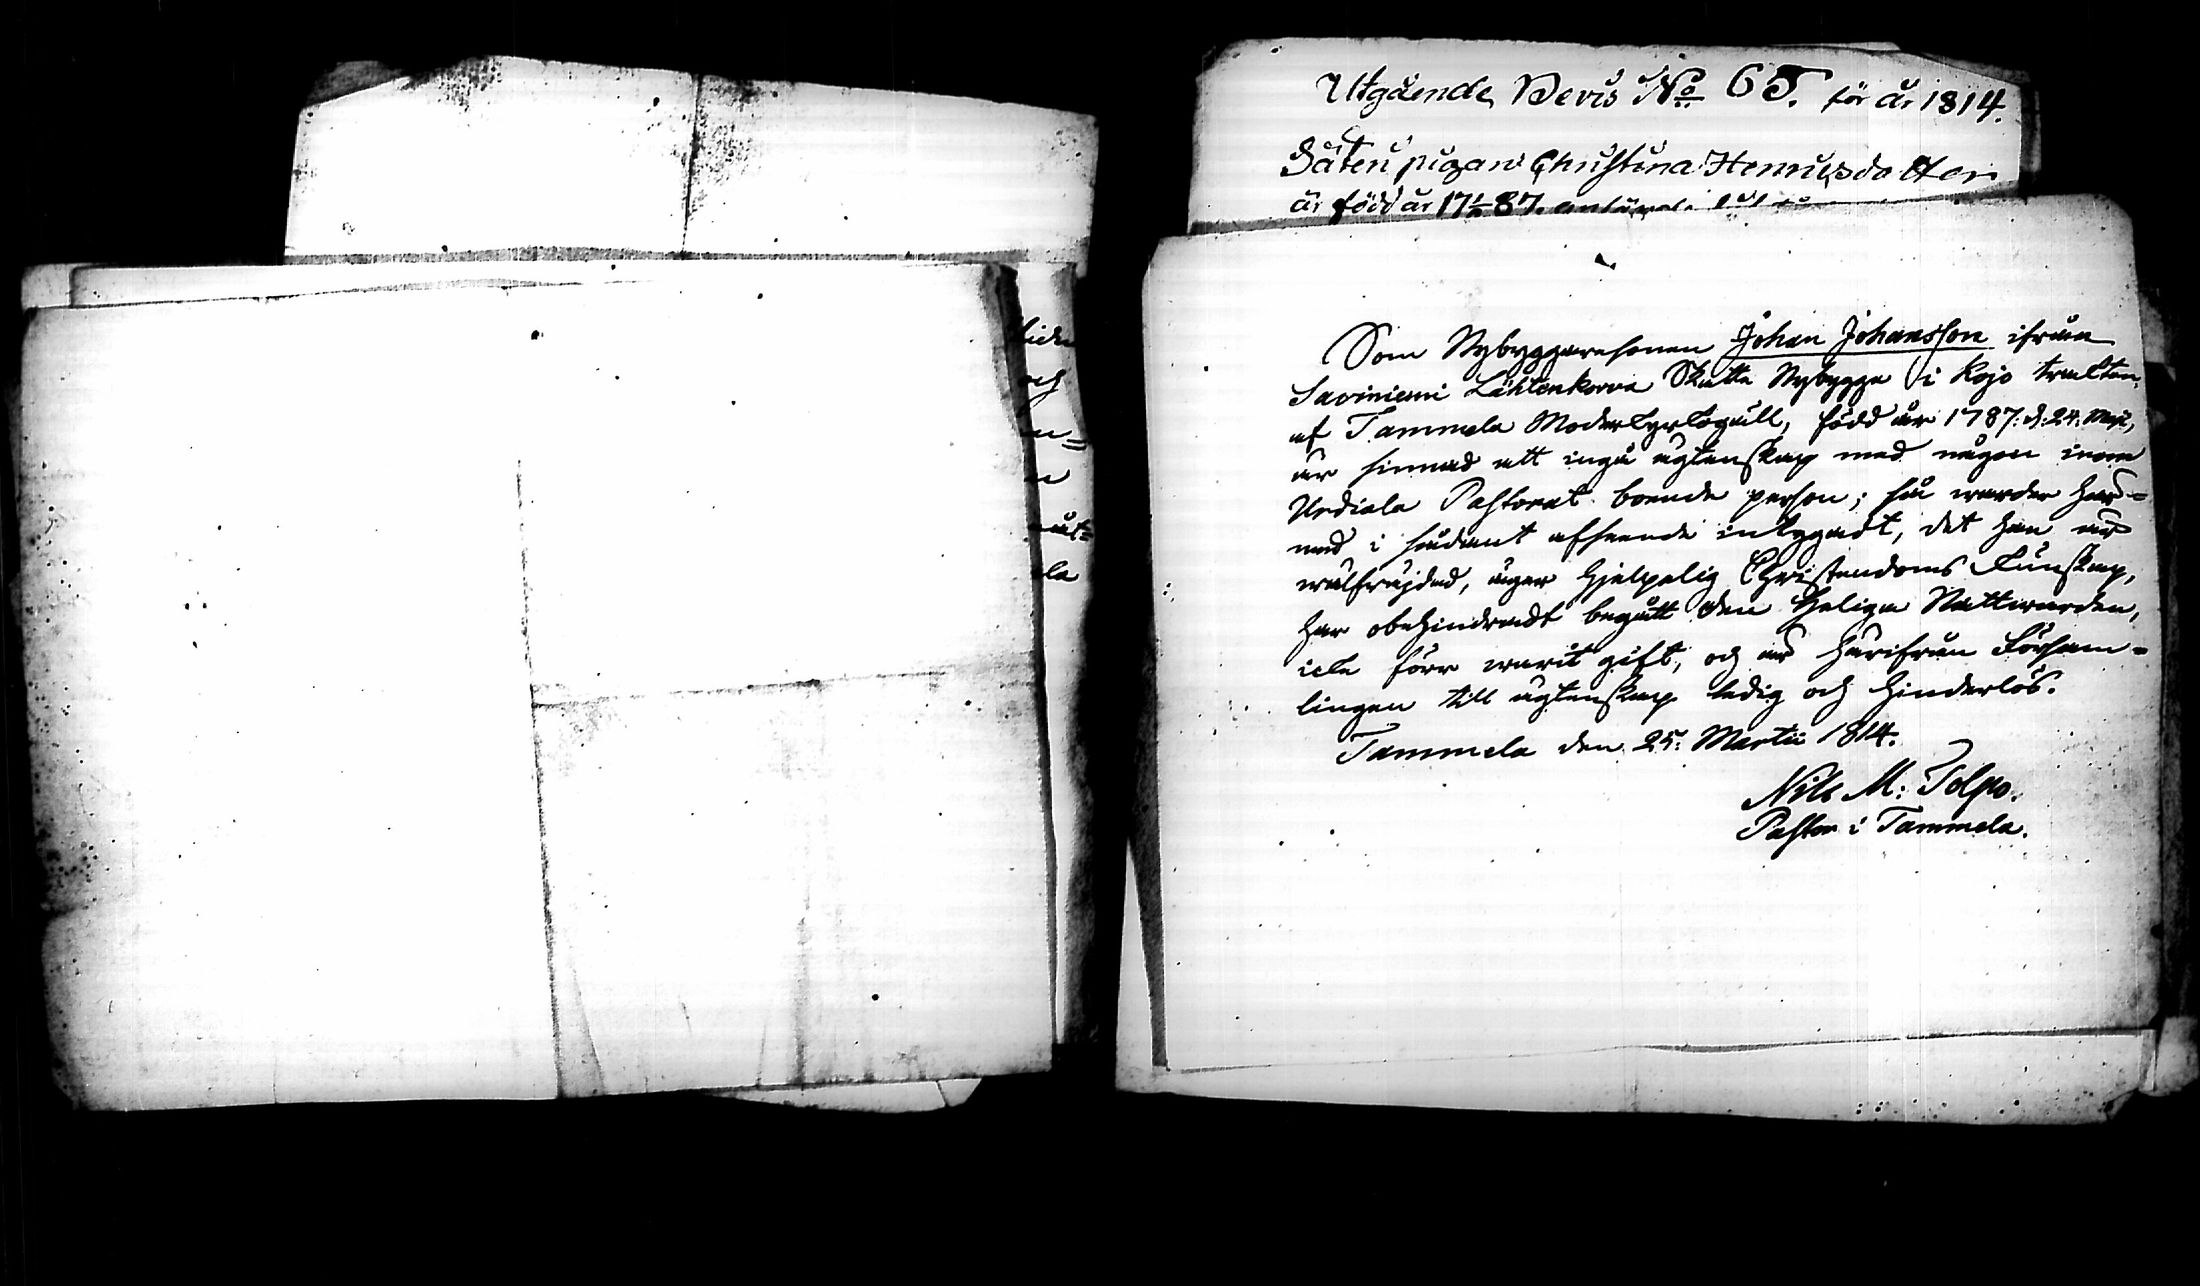 Utgående Bevis No 65. för år 1814.
Säteri pigan Christina Henricsdotter
är född år 1787.
Som Nybyggaresonen Johan Johansson ifrån
Saviniemi Lähtenkorva Skatte Nybygge i Kojo trakten,
af Tammela Moderkyrkogäll, född år 1787: d: 24. Maji,
är sinnad att ingå ägtenskap med någon inom
Urdiala Pastorat boende person; så warder här-
med i sådant afseende intygadt, det han är
wälfrejdad, äger hjelpelig Christendoms Kunskap,
har obehindradt begått den Heliga Nattwarden,
icke förr warit gift, och är härifrån Försam-
lingen till ägtenskap ledig och hinderlös.
Tammela den 25: Martii 1814.
Nils M: Tolpo.
Pastor i Tammela.
och